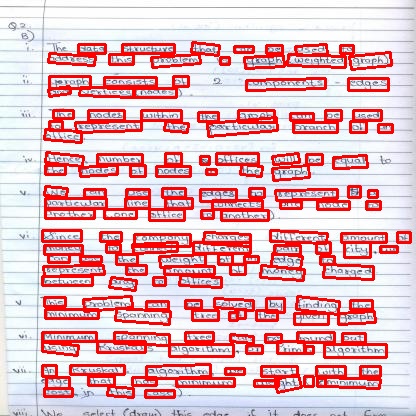 Q2.
B)
i. The data structure that can be used to
address this problem is graph (weighted graph)
ii. graph consists of 2 components - edges
and vertices (nodes)
iii. The nodes within the graph can be used
to represent the particular branch of an
office
iv. Hence number of offices will be equal to
the nodes of nodes in the graph
v. We can use the edges to represent
particular line that connects one
another (one office to another)
vi. Since the company charges different amount of
money to different city.
can the weight of edge
represent the amount of money charged
between offices
v This problem can be solved by finding the
minimum spanning tree of the given graph
vi. Minimum spanning tree can be found out
using Kruskal's algorithm or Prim's algorithm
vii. In Kruskal's algorithm we start with the
edge that has minimum weight minimum
cost in this case)
viii. We select (draw) this edge if it does not form